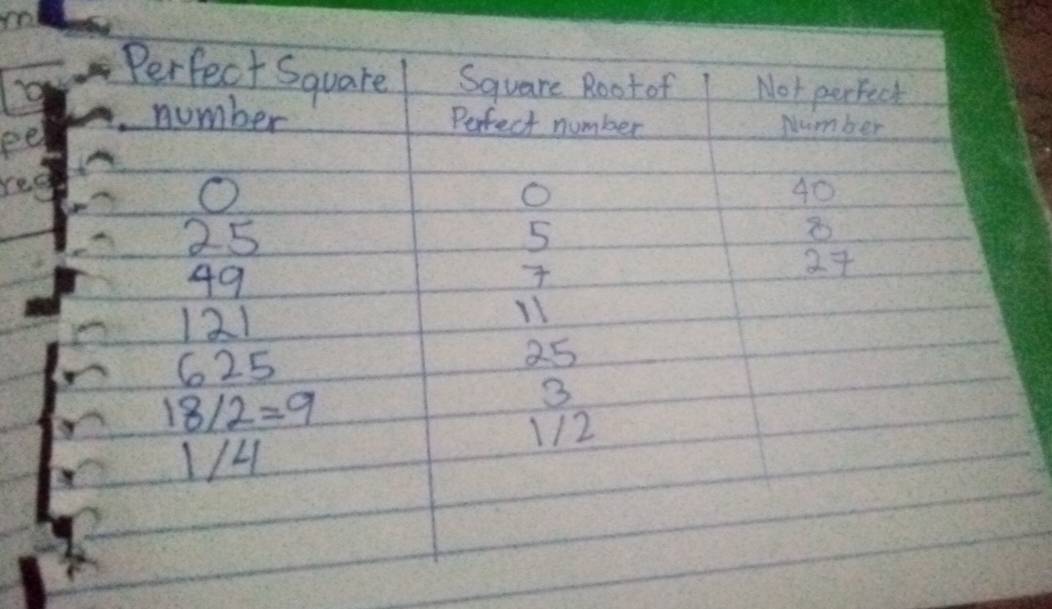 m
Perfect Square Square Root of Not perfect
number Perfect number Number
pe
reg
0 0 40
25 5 8
49 7 27
121 11
625 25
18/2=9 3
1/4 1/2